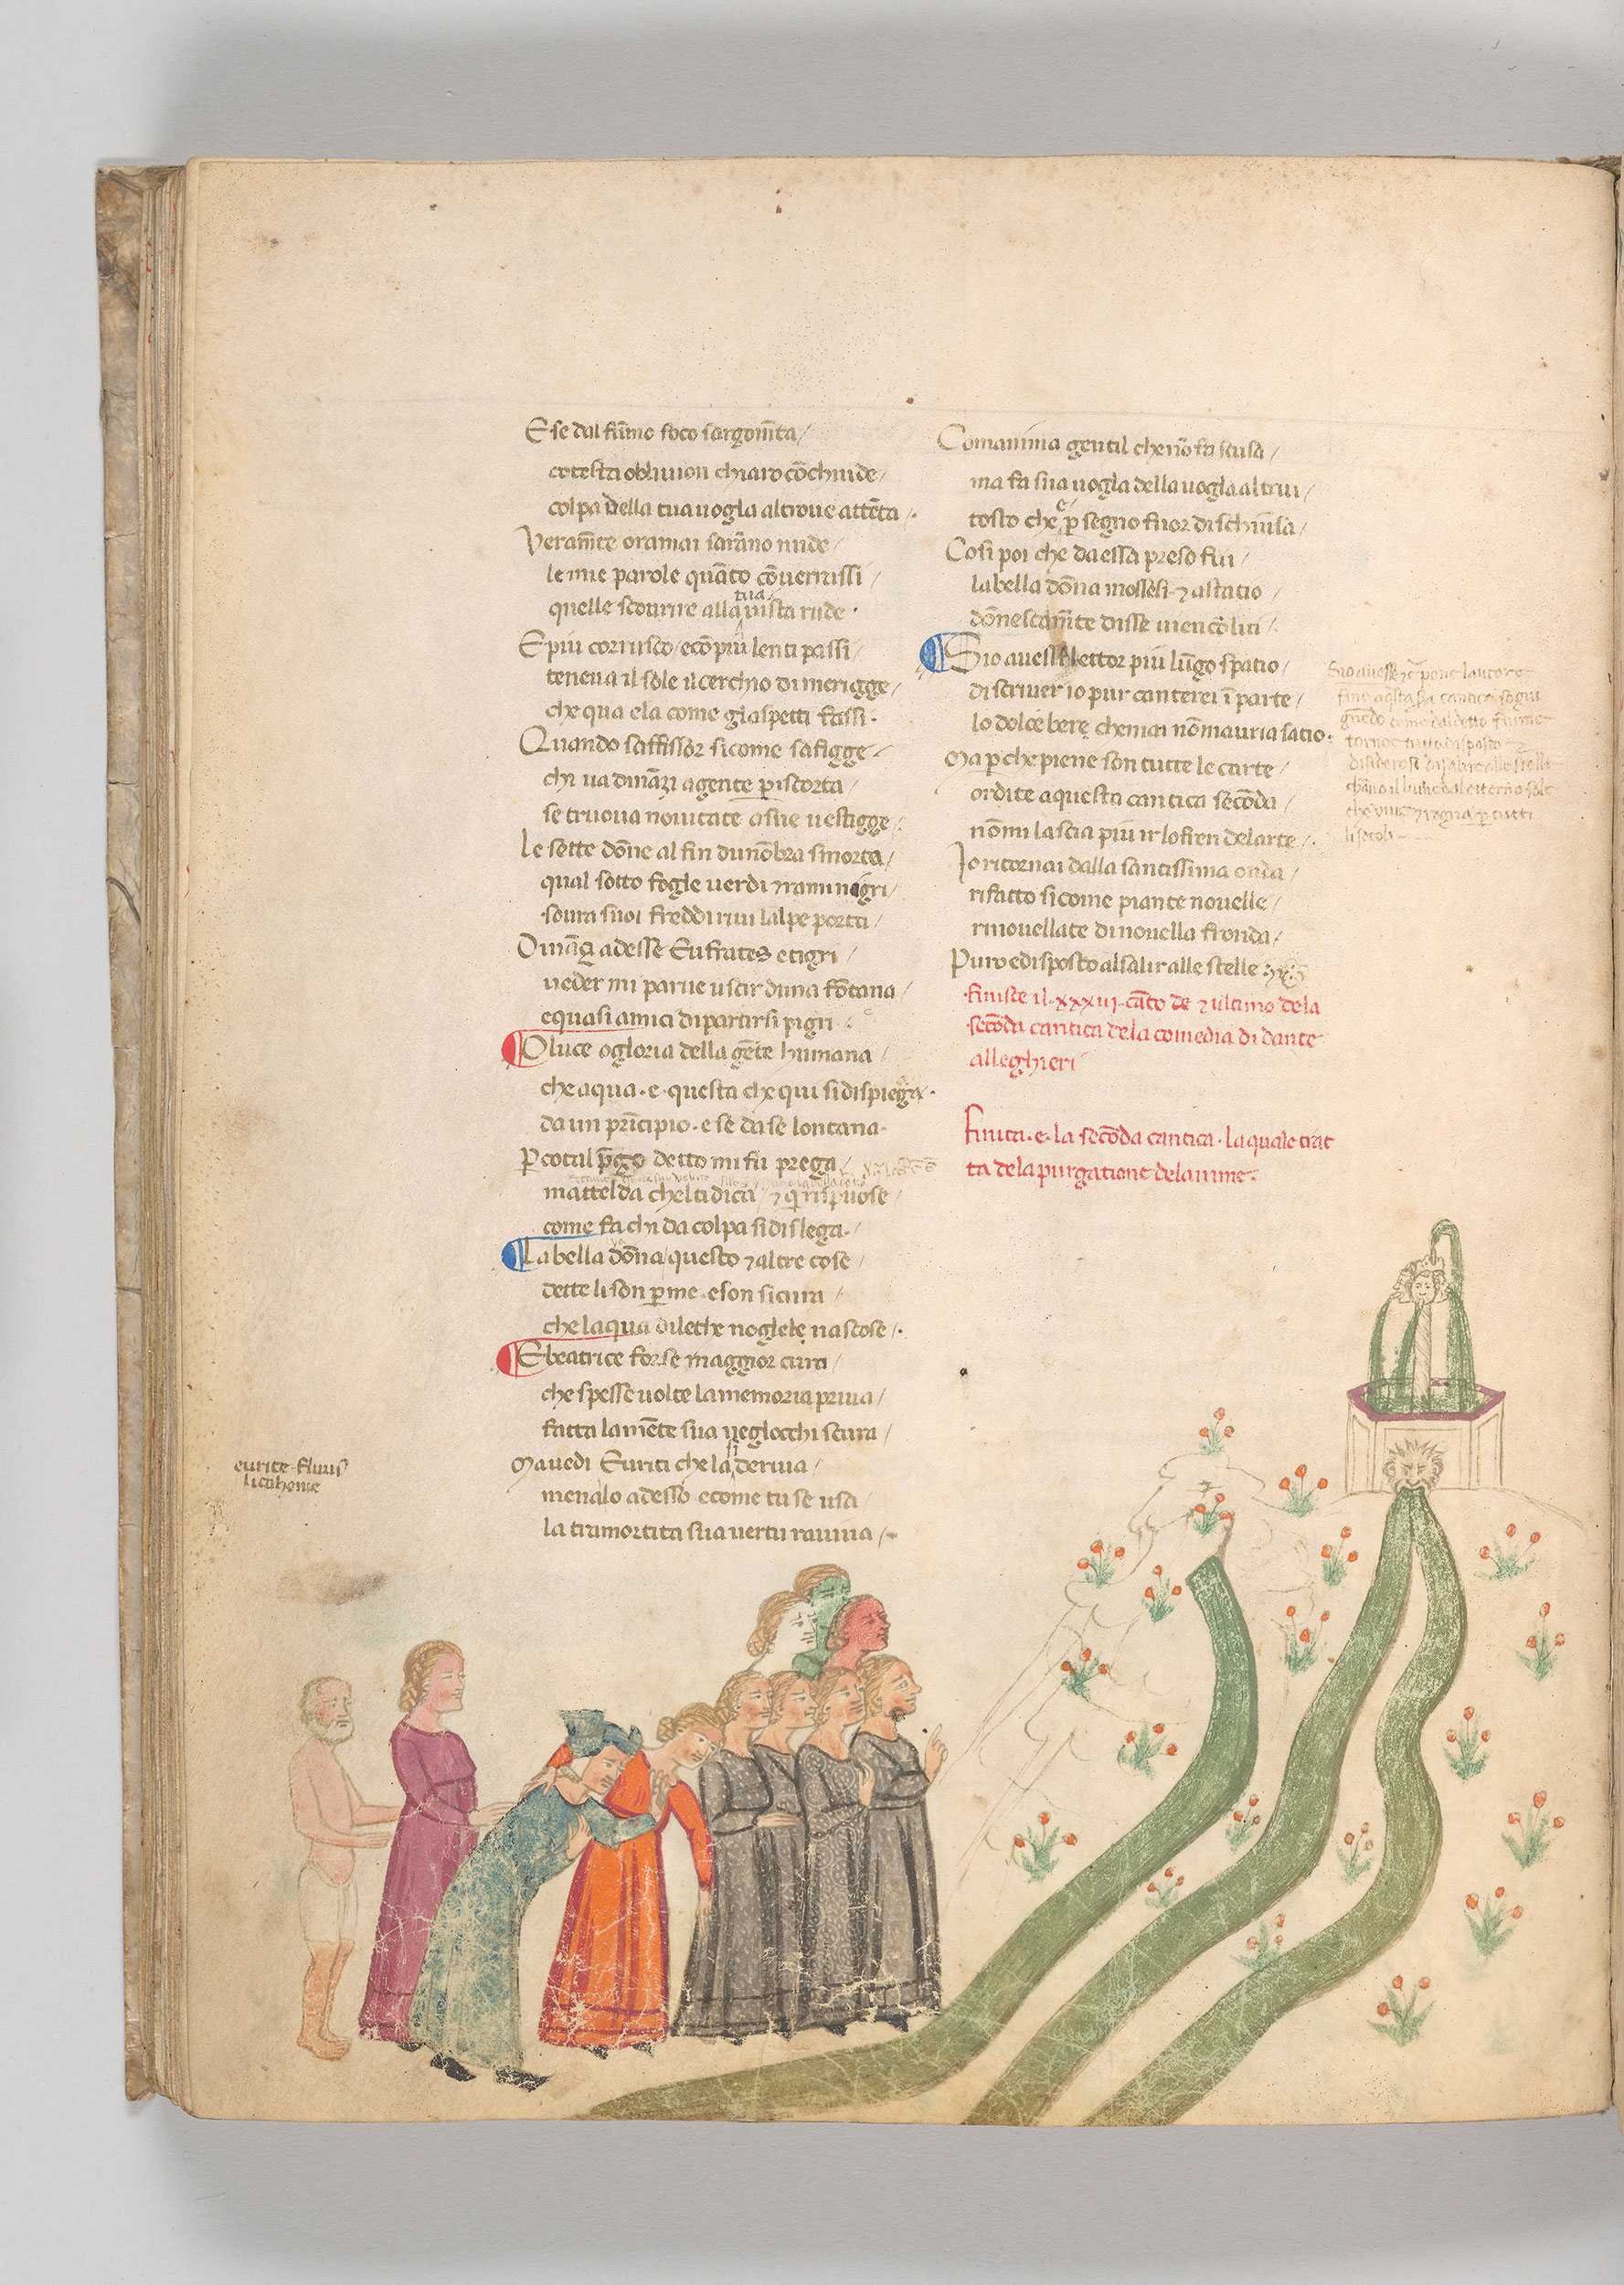 E se dal fūmo foco sargom̄ta /
cotesta oblivion chiaro cōchiude /
colpa della tua uogla altroue attēta /.
Veram̄te oramai sarāno nude /
le mie parole quāto cōuerrassi /
quelle scourire alla tua uista rude .
E piu corrusco / e cō piu lenti passi /
teneua il sole il cerchio di merigge /
che qua e la come gl aspetti fassi .
Quando saffissor sicome safigge /
chi ua dināzi agente p̄ iscorta /
se truoua nouitate asue uestigge /.
Le sette dōne al fin dunōbra smorta /
qual sotto fogle uerdi ⁊ rami nigri /
soura suoi freddi riui lalpe porta /
Dināzi adesse Eufrates e tigri /
ueder mi parue uscir duna fōtana /
e quasi amici dipartirsi pigri .
O luce o gloria della gēte humana /
che aqua . e . questa che qui si dispiega .
da un prīcipio . e se da se lontana .
P̄ cotal p̄go detto mi fu prega /
mattelda chel ti dica / ⁊ q̄ rispuose /
come fa chi da colpa si dislega .
La bella dōna questo ⁊ altre cose /
dette li son p̄ me . e son sicura /
che laqua di lethe no gle le nascose /.
E beatrice forse maggior cura /
che spesse uolte la memoria priua /
fatta la mēte sua ne glocchi scura /
Ma uedi Eurici che la si deriua /
menalo adesso e come tu se usa /
la tramortita sua uertu rauiua /.
eurite . fluus
Com anima gentil che nō fa scusa /
ma fa sua uogla della uogla altrui /
tosto che e p̄ segno fuor dischiusa /
Cosi poi che da essa preso fui /
la bella dōna mossesi . ⁊ a statio /
dōnescam̄te disse uien cō lui /.
S io auessi lettor piu lūgo spatio /
di scriuer io pur canterei ī parte /
lo dolce bere che mai nō mauria satio .
Ma p̄ che piene son tutte le carte /
ordite a questa cantica secōda /
nō mi lascia piu ir lo fren de larte /.
Io ritornai dalla santissima onda /
rifatto si come piante nouelle /
rinouellate di nouella fronda /
Puro e disposto al salir alle stelle
finisce il . xxxiij . cāto de ⁊ ultimo de la
secōda cantica de la comedia di dante
alleghieri
Finita . e . la secōda cantica . la quale trat
ta de la purgatione de lanime .